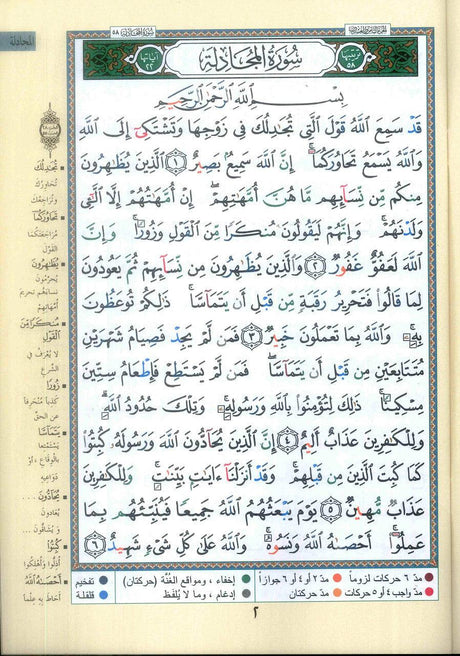 سورة المجادلة ٥٨
المجادلة
ترتيبها ٥٨
سُورَةُ المُجَادلَة
آياتها ٢٢
بِسْمِ اللَّهِ الرَّحْمَٰنِ الرَّحِيمِ
قَدْ سَمِعَ اللَّهُ قَوْلَ الَّتِي تُجَٰدِلُكَ فِي زَوْجِهَا وَتَشْتَكِيٓ إِلَى اللَّهِ
وَاللَّهُ يَسْمَعُ تَحَاوُرَكُمَآ ۚ إِنَّ اللَّهَ سَمِيعٌۢ بَصِيرٌ ١ الَّذِينَ يُظَٰهِرُونَ
مِنكُم مِّن نِّسَآئِهِم مَّا هُنَّ أُمَّهَٰتِهِمْ ۖ إِنْ أُمَّهَٰتُهُمْ إِلَّا الَّٰٓـِٔي
وَلَدْنَهُمْ ۚ وَإِنَّهُمْ لَيَقُولُونَ مُنكَرًا مِّنَ الْقَوْلِ وَزُورًا ۚ وَإِنَّ
اللَّهَ لَعَفُوٌّ غَفُورٌ ٢ وَالَّذِينَ يُظَٰهِرُونَ مِن نِّسَآئِهِمْ ثُمَّ يَعُودُونَ
لِمَا قَالُوا فَتَحْرِيرُ رَقَبَةٍ مِّن قَبْلِ أَن يَتَمَآسَّا ۚ ذَٰلِكُمْ تُوعَظُونَ
بِهِۦ ۚ وَاللَّهُ بِمَا تَعْمَلُونَ خَبِيرٌ ٣ فَمَن لَّمْ يَجِدْ فَصِيَامُ شَهْرَيْنِ
مُتَتَابِعَيْنِ مِن قَبْلِ أَن يَتَمَآسَّا ۖ فَمَن لَّمْ يَسْتَطِعْ فَإِطْعَامُ سِتِّينَ
مِسْكِينًا ۚ ذَٰلِكَ لِتُؤْمِنُوا بِاللَّهِ وَرَسُولِهِۦ ۚ وَتِلْكَ حُدُودُ اللَّهِ ۗ
وَلِلْكَٰفِرِينَ عَذَابٌ أَلِيمٌ ٤ إِنَّ الَّذِينَ يُحَآدُّونَ اللَّهَ وَرَسُولَهُۥ كُبِتُوا
كَمَا كُبِتَ الَّذِينَ مِن قَبْلِهِمْ ۚ وَقَدْ أَنزَلْنَآ ءَايَٰتٍۭ بَيِّنَٰتٍ ۚ وَلِلْكَٰفِرِينَ
عَذَابٌ مُّهِينٌ ٥ يَوْمَ يَبْعَثُهُمُ اللَّهُ جَمِيعًا فَيُنَبِّئُهُم بِمَا
عَمِلُوٓا ۚ أَحْصَىٰهُ اللَّهُ وَنَسُوهُ ۚ وَاللَّهُ عَلَىٰ كُلِّ شَيْءٍ شَهِيدٌ ٦
تُجَٰدِلُكَ
تُحاوِرُكَ
وتُراجِعُكَ
تَحَاوُرَكُمَا
مُراجَعَتَكُما
القَوْل
يُظَٰهِرُونَ
يُحرّمون
نساءهم تحريم
أمّهاتهم
مُنكَرًا مِّنَ
الْقَوْلِ
لا يُعْرَف في
الشّرع
زُورًا
كذباً مُنحرفاً
عن الحقّ
يَتَمَآسَّا
يَسْتَمْتعا
بالوِقاع ، أو
دَواعِيه
يُحَآدُّونَ
يُعادون
ويُشاقّون
كُبِتُوا
أُذِلّوا وأُهلكوا
أَحْصَىٰهُ اللَّهُ
أحاط به عِلْماً
مدّ ٦ حركات لزوماً
مدّ ٢ أو ٤ أو ٦ جوازاً
إخفاء ، ومواقع الغُنَّة (حركتان)
تفخيم
مدّ واجب ٤ أو ٥ حركات
مدّ حركتان
إدغام ، وما لا يُلفَظ
قلقلة
٢